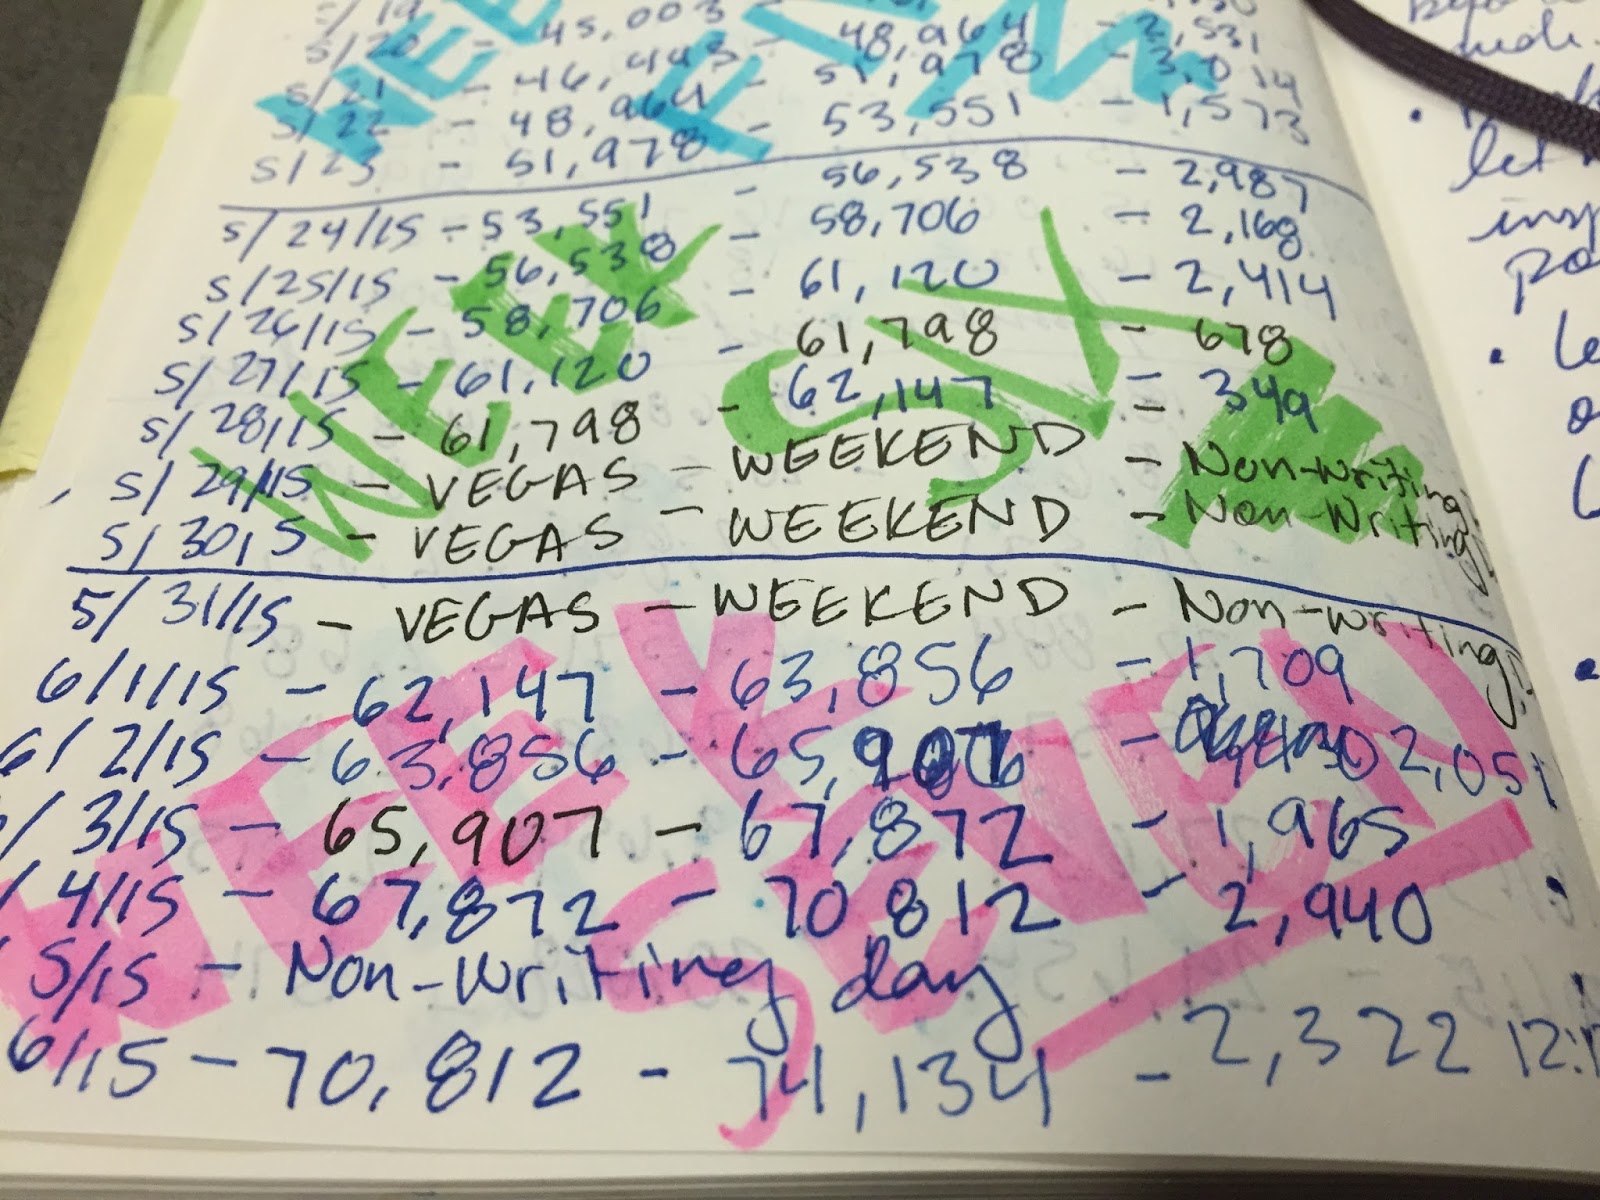 5/19
5/20 - 45,003 - 48,964 - 2,531
5/21 - 46,443 - 51,978 - 3,014
5/22 - 48,964 - 53,551 - 1,573
5/23 - 51,978
5/24/15 - 53,551 - 56,538 - 2,987
5/25/15 - 56,538 - 58,706 - 2,168
5/26/15 - 58,706 - 61,120 - 2,414
5/27/15 - 61,120 - 61,798 - 678
5/28/15 - 61,798 - 62,147 - 349
5/29/15 - VEGAS - WEEKEND - Non-writing!
5/30/15 - VEGAS - WEEKEND - Non-Writing!
WEEK SIX
5/31/15 - VEGAS - WEEKEND - Non-writing!
6/1/15 - 62,147 - 63,856 - 1,709
6/2/15 - 63,856 - 65,907 - 2,051
/3/15 - 65,907 - 67,872 - 1,965
/4/15 - 67,872 - 70,812 - 2,940
/5/15 - Non-Writing day
6/15 - 70,812 - 74,134 - 2,322 12:1
WEEK SEVEN
let